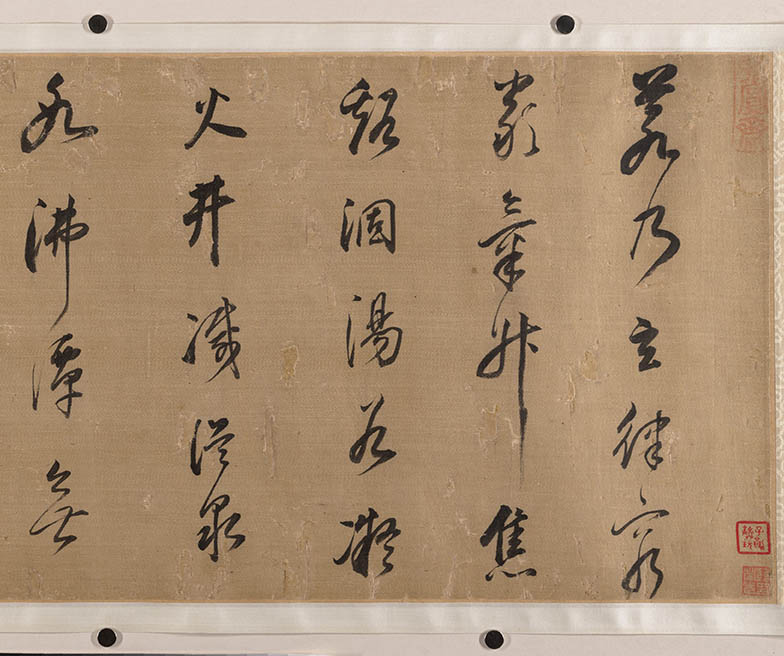 若乃玄律窮
嚴氣升焦
谿涸湯谷凝
火井滅溫泉
氷沸潭無